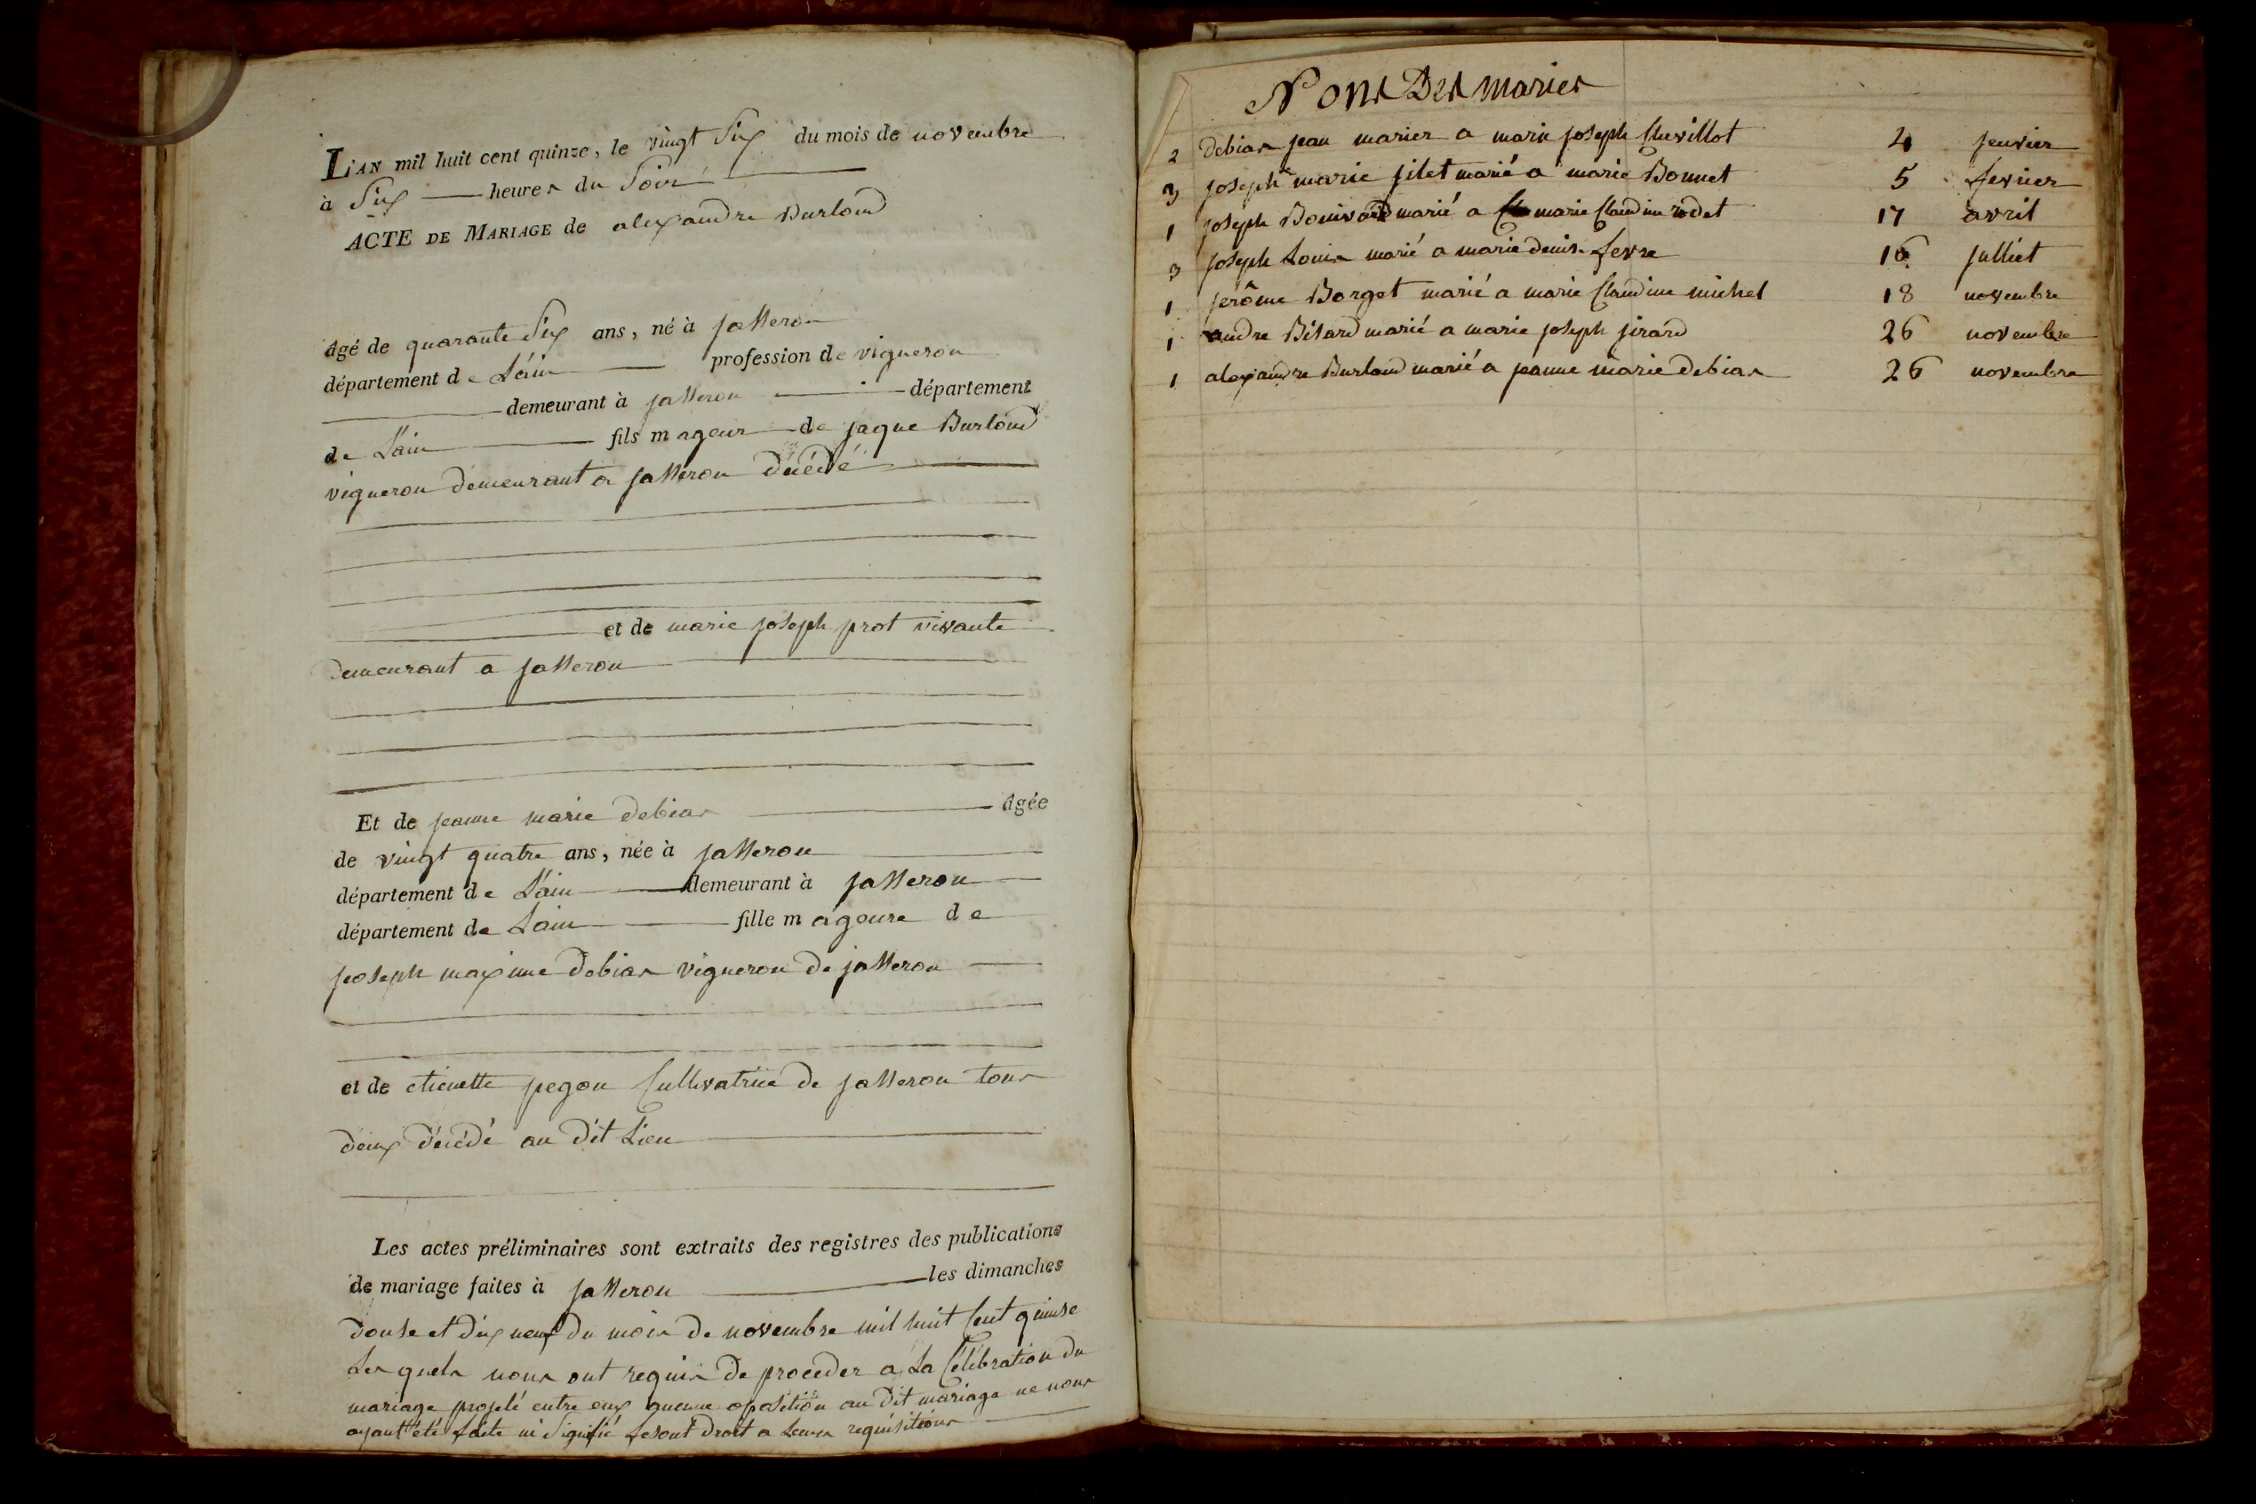 L'AN mil huit cent quinze, le vingt Six du mois de novembre
à Six heures du Soir
ACTE DE MARIAGE de alexandre Burloud
âgé de quarante Six ans, né à jasseron
département de L'ain profession de vigneron
demeurant à jasseron département
de L'ain fils mageur de jaque Burloud
vigneron demeurant a jasseron décédé
et de marie joseph prot vivante
demeurant a jasseron
Et de jeanne marie debias âgée
de vingt quatre ans, née à jasseron
département de L'ain demeurant à jasseron
département de Lain fille mageure de
joseph maxime debias vigneron de jasseron
et de etienette pegon Cultivatrice de jasseron tous
deux décédé au dit Lieu
Les actes préliminaires sont extraits des registres des publications
de mariage faites à jasseron les dimanches
douse et dix neuf du mois de novembre mil huit Cent quinse
Les quels nous ont requis de proceder a La Célébration du
mariage projeté entre eux aucune oposition au dit mariage ne nous
ayant été faite ni Signifié fesont droit a Leurs requisitions
Noms Des maries
2 debias jean marier a marie joseph Chevillot 4 jenvier
3 joseph marie jilet marié a marie Bonnet 5 fevrier
1 joseph Bouivard marié a marie Claudine rodet 17 avril
3 joseph Louis marié a marie denise fevre 16 julliet
1 jerôme Borget marié a marie Claudine michel 18 novembre
1 andre Bisard marié a marie joseph jirard 26 novembre
1 alexandre Burloud marié a jeanne marie debias 26 novembre